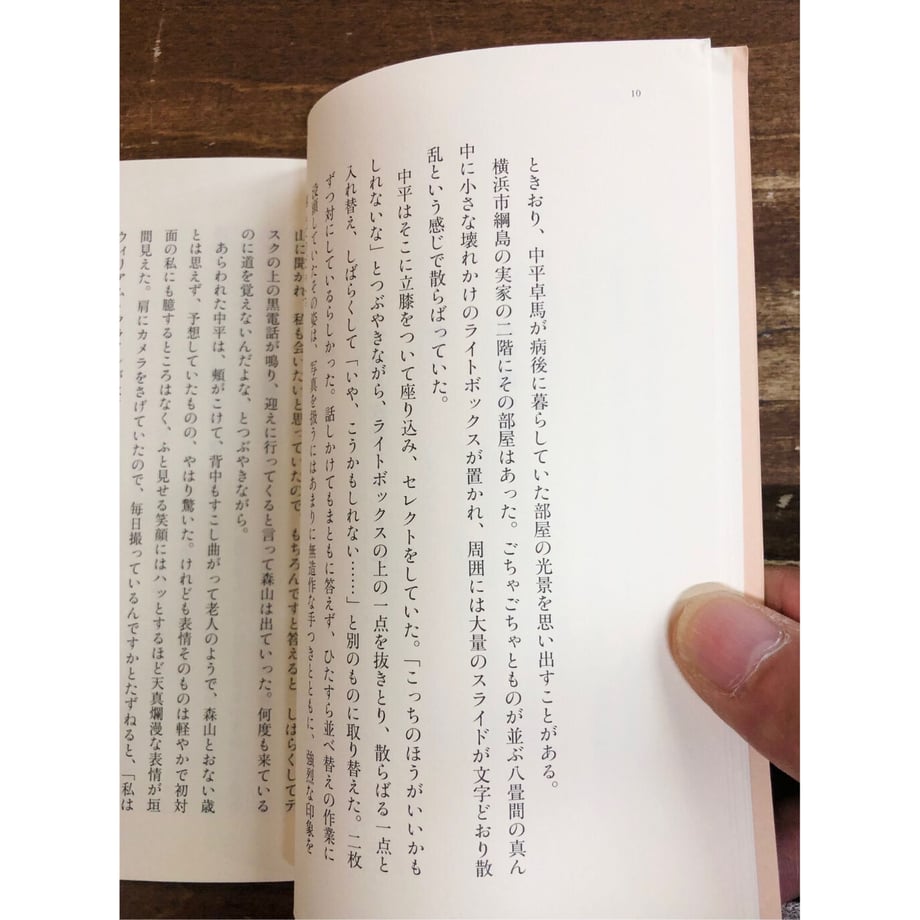 10
ときおり、中平卓馬が病後に暮らしていた部屋の光景を思い出すことがある。
横浜市綱島の実家の二階にその部屋はあった。ごちゃごちゃとものが並ぶ八畳間の真ん
中に小さな壊れかけのライトボックスが置かれ、周囲には大量のスライドが文字どおり散
乱という感じで散らばっていた。
中平はそこに立膝をついて座り込み、セレクトをしていた。「こっちのほうがいいかも
しれないな」とつぶやきながら、ライトボックスの上の一点を抜きとり、散らばる一点と
入れ替え、しばらくして「いや、こうかもしれない……」と別のものに取り替えた。二枚
ずつ対にしているらしかった。話しかけてもまともに答えず、ひたすら並べ替えの作業に
没頭していたその姿は、写真を扱うにはあまりに無造作な手つきとともに、強烈な印象を
山に聞かれ、私も会いたいと思っていたので、もちろんですと答えると、しばらくしてデ
スクの上の黒電話が鳴り、迎えに行ってくると言って森山は出ていった。何度も来ている
のに道を覚えないんだよな、とつぶやきながら。
あらわれた中平は、頰がこけて、背中もすこし曲がって老人のようで、森山とおない歳
とは思えず、予想していたものの、やはり驚いた。けれども表情そのものは軽やかで初対
面の私にも臆するところはなく、ふと見せる笑顔にはハッとするほど天真爛漫な表情が垣
間見えた。肩にカメラをさげていたので、毎日撮っているんですかとたずねると、「私は